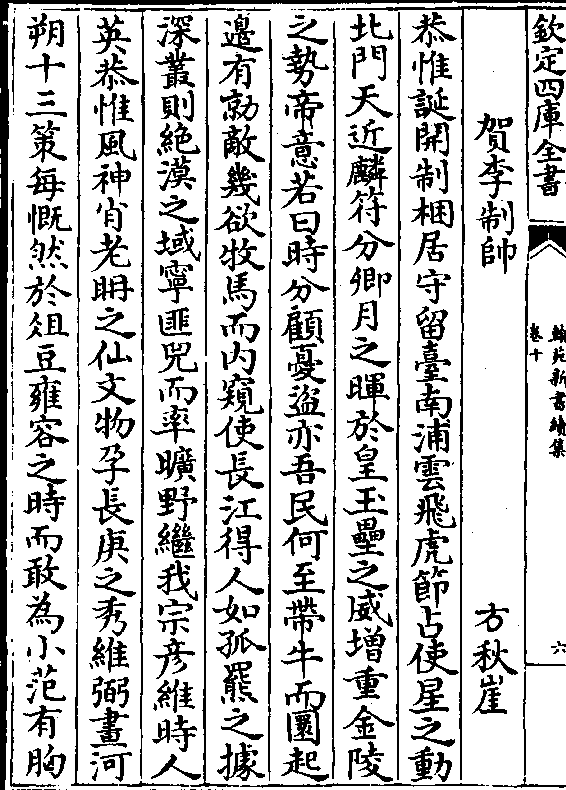 欽定四庫全書
翰苑新書續集
卷十
六
賀李制帥
方秋崖
恭惟誕開制梱居守留臺南浦雲飛虎節占使星之動
北門天近麟符分卿月之暉於皇玉壘之威增重金陵
之勢帝意若曰時分顧憂盜亦吾民何至帶牛而圜起
邉有勍敵幾欲牧馬而内窺使長江得人如孤羆之據
深叢則絶漠之域寧匪兕而率曠野繼我宗彦維時人
英恭惟風神肖老耼之仙文物孕長庚之秀維弼畫河
朔十三策每慨然於俎豆雍容之時而敢為小范有胸